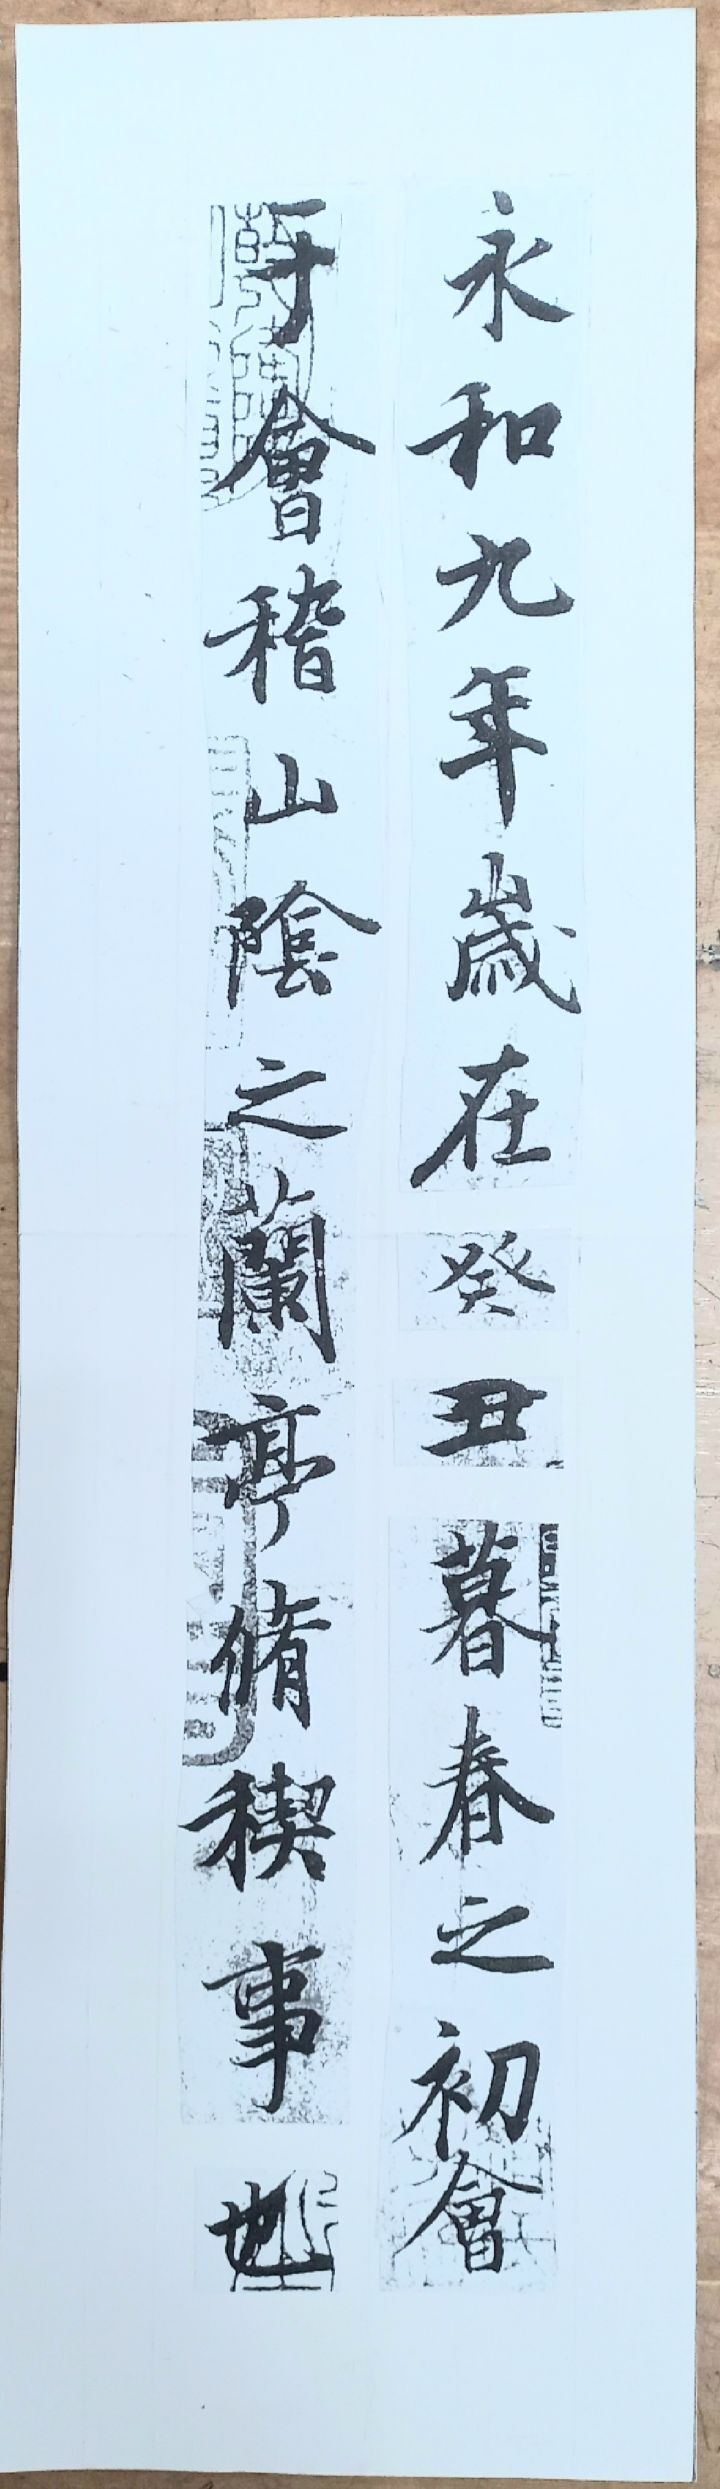 永和九年歲在癸丑暮春之初會
于會稽山陰之蘭亭脩稧事也